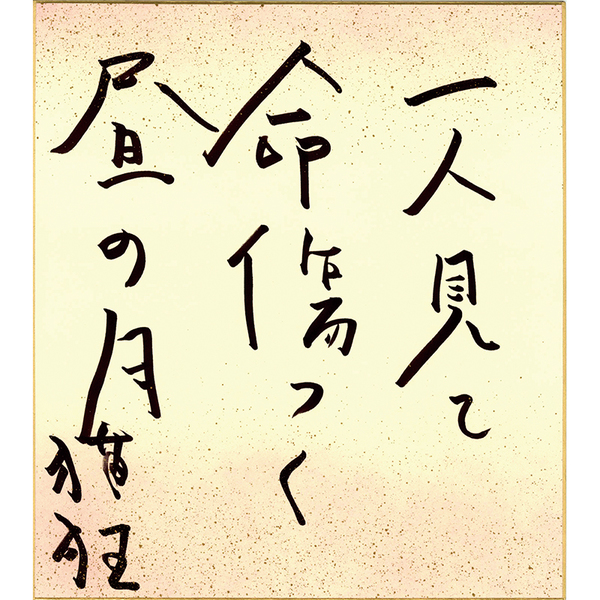 一人見て
命傷つく
昼の月
猫狂